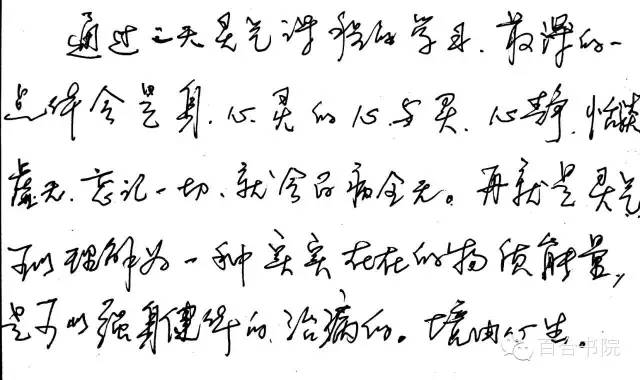 通过三天灵气课程的学习、最深的一
点体会是身、心、灵的心与灵、心静、恬淡
虚无、忘记一切、就会百病全无。再就是灵气
可以理解为一种实实在在的物质能量，
是可以强身健体的、治病的。
百合书院